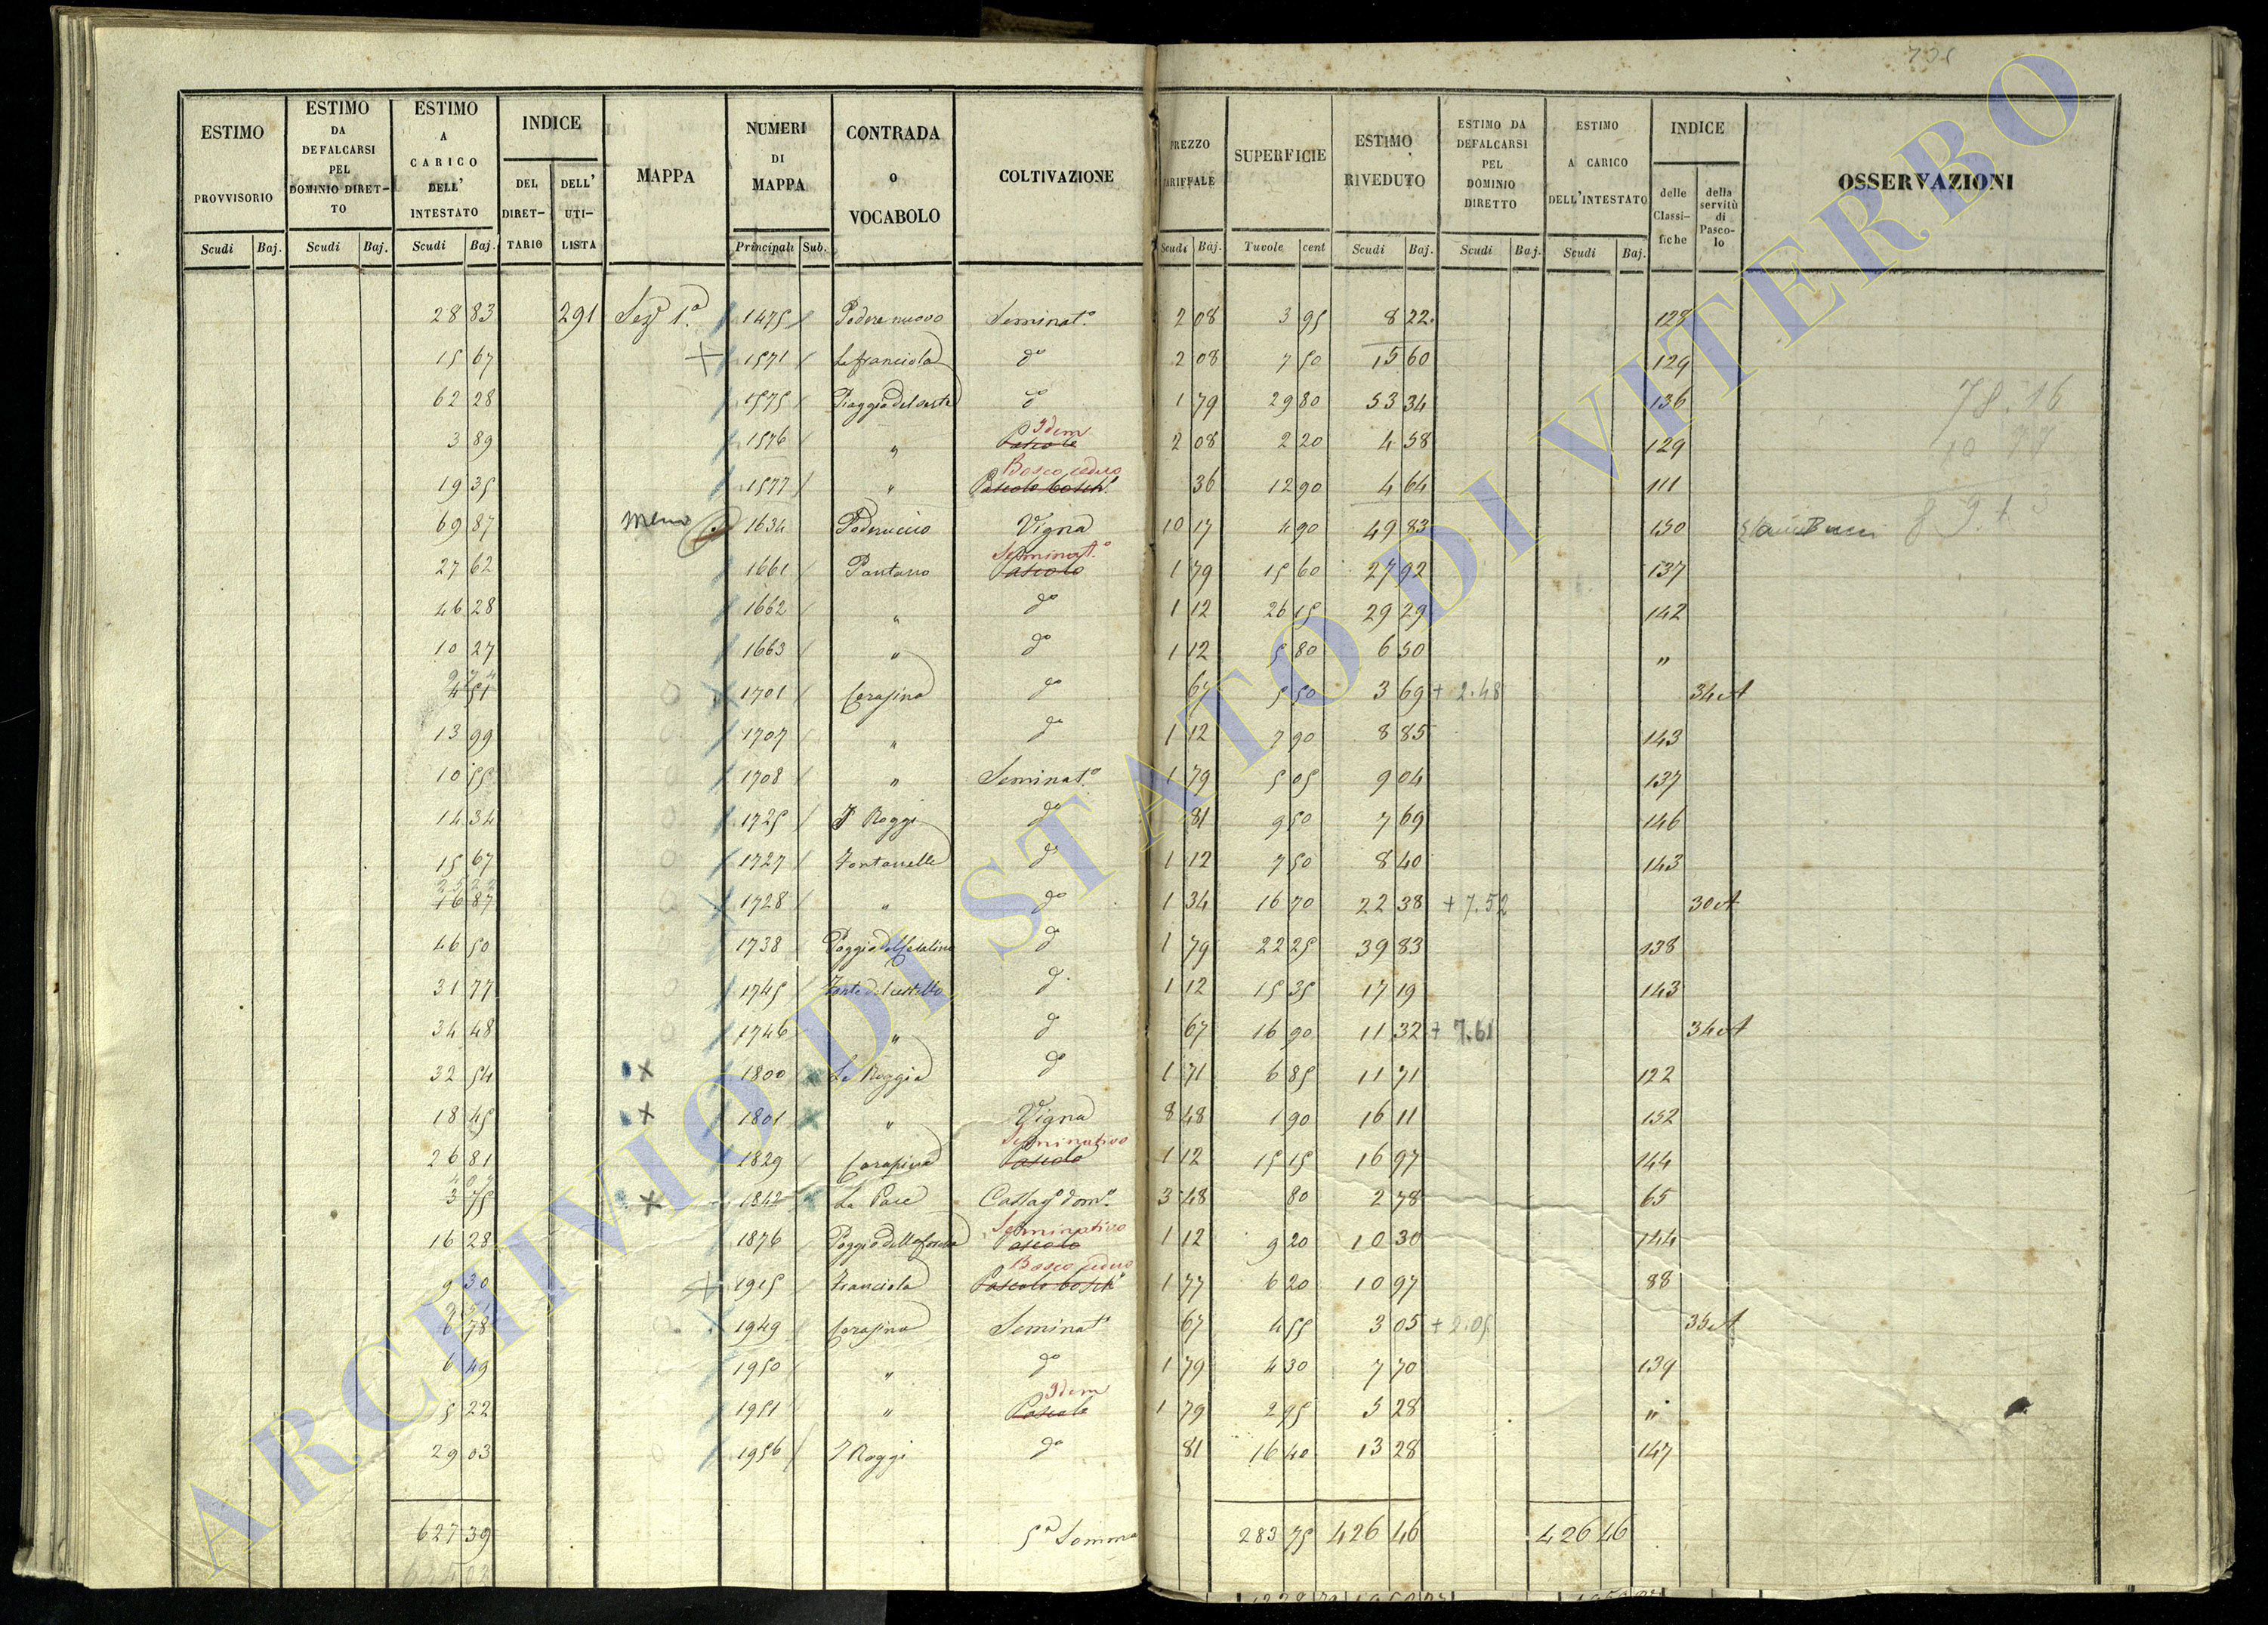 735
ESTIMO PROVVISORIO
ESTIMO DA DEFALCARSI PEL DOMINIO DIRET-TO
ESTIMO A CARICO DELL' INTESTATO
INDICE
DEL DIRET-TARIO
DELL' UTI-LISTA
MAPPA
NUMERI DI MAPPA
CONTRADA o VOCABOLO
COLTIVAZIONE
PREZZO TARIFFALE
SUPERFICIE
ESTIMO RIVEDUTO
ESTIMO DA DEFALCARSI PEL DOMINIO DIRETTO
ESTIMO A CARICO DELL'INTESTATO
INDICE
delle Classi-fiche
della servitù di Pasco-lo
OSSERVAZIONI
Scudi Baj. Scudi Baj. Scudi Baj. Principali Sub. Scudi Baj. Tavole cent Scudi Baj. Scudi Baj. Scudi Baj.
28 83 291 Sezᵉ 1.ª 1475 Podere nuovo Seminat.º 2 08 3 95 8 22 128
15 67 + 1571 La franciola dº 2 08 7 50 15 60 129
62 28 1575 Piaggia del dº 1 79 29 80 53 34 136
3 89 1576 " Pascolo Idem 2 08 2 20 4 58 129
19 35 1577 " Pascolo bosch.º Bosco ceduo 36 12 90 4 64 111
69 87 1634 Poderuccio Vigna 10 17 4 90 49 83 150
27 62 1661 Pantano Pascolo Seminat.º 1 79 15 60 27 92 137
46 28 1662 " dº 1 12 26 15 29 29 142
10 27 1663 " dº 1 12 5 80 6 50 "
4 51 1701 Carasina dº 67 5 50 3 69 + 2.48 34 A
13 99 1707 " dº 1 12 7 90 8 85 143
10 55 1708 " Seminat.º 1 79 5 05 9 04 137
14 34 1725 I Roggi dº 81 9 50 7 69 146
15 67 1727 Fontanelle dº 1 12 7 50 8 40 143
25 22
16 87 1728 " dº 1 34 16 70 22 38 + 7.52 30 A
46 50 1738 Poggio dº 1 79 22 25 39 83 138
31 77 1745 Fonte del castello dº 1 12 15 35 17 19 143
34 48 1746 " dº 67 16 90 11 32 + 7.61 34 A
32 54 + 1800 La Roggia dº 1 71 6 85 11 71 122
18 45 + 1801 " Vigna 8 48 1 90 16 11 152
26 81 1829 Carasina Pascolo Seminativo 1 12 15 15 16 97 144
3 75 + 1842 La Pace Castagº domº 3 48 80 2 78 65
16 28 1876 Poggio della Pascolo Seminativo 1 12 9 20 10 30 144
9 30 + 1915 Franciola Pascolo boschº Bosco ceduo 1 77 6 20 10 97 88
6 78 1949 Carasina Seminatº 67 4 55 3 05 + 2.05 35 A
6 49 1950 " dº 1 79 4 30 7 70 139
5 22 1951 " Pascolo Idem 1 79 2 95 5 28 "
29 03 1956 I Roggi dº 81 16 40 13 28 147
627 39 5ª Somma 283 75 426 46 426 46
78.16
ARCHIVIO DI STATO DI VITERBO